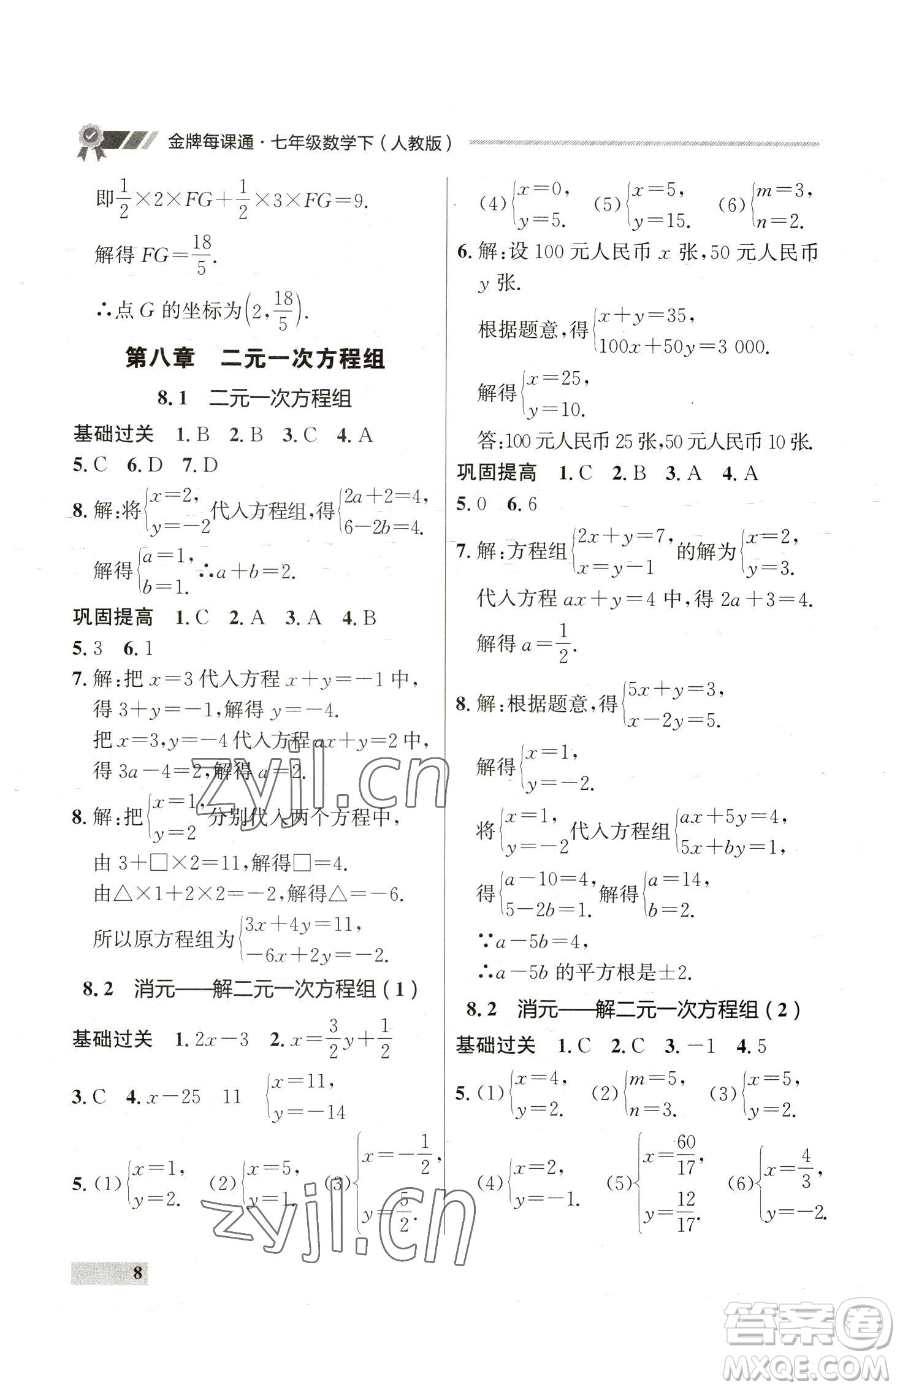 金牌每课通·七年级数学下(人教版)
即1/2×2×FG+1/2×3×FG=9.
解得 FG=18/5.
∴点 G 的坐标为(2,18/5).
第八章 二元一次方程组
8.1 二元一次方程组
基础过关 1.B 2.B 3.C 4.A
5.C 6.D 7.D
8.解:将{x=2, y=-2 代入方程组,得{2a+2=4, 6-2b=4.
解得{a=1, b=1. ∴a+b=2.
巩固提高 1.C 2.A 3.A 4.C
5.3 6.1
7.解:把 x=3 代入方程 x+y=-1 中,
得 3+y=-1,解得 y=-4.
把 x=3,y=-4 代入方程 ax+y=2 中,
得 3a-4=2,解得 a=2.
8.解:把{x=1, y=2 分别代入两个方程中,
由 3+□×2=11,解得□=4.
由△×1+2×2=-2,解得△=-6.
所以原方程组为{3x+4y=11, -6x+2y=-2.
8.2 消元——解二元一次方程组(1)
基础过关 1.2x-3 2.x=3/2y+1/2
3.C 4.x-25 11 {x=11, y=-14
5.(1){x=1, y=2. (2){x=5, y=2. (3){x=-1/2, y=5/2.
8
(4){x=0, y=5. (5){x=5, y=15. (6){m=3, n=2.
6.解:设 100 元人民币 x 张,50 元人民币
y 张.
根据题意,得{x+y=35, 100x+50y=3 000.
解得{x=25, y=10.
答:100 元人民币 25 张,50 元人民币 10 张.
巩固提高 1.C 2.B 3.A 4.A
5.0 6.6
7.解:方程组{2x+y=7, x=y-1 的解为{x=2, y=3.
代入方程 ax+y=4 中,得 2a+3=4.
解得 a=1/2.
8.解:根据题意,得{5x+y=3, x-2y=5.
解得{x=1, y=-2.
将{x=1, y=-2 代入方程组{ax+5y=4, 5x+by=1.
得{a-10=4, 5-2b=1. 解得{a=14, b=2.
∵a-5b=4,
∴a-5b 的平方根是±2.
8.2 消元——解二元一次方程组(2)
基础过关 1.C 2.C 3.-1 4.5
5.(1){x=4, y=2. (2){m=5, n=3. (3){x=5, y=2.
(4){x=2, y=-1. (5){x=60/17, y=12/17. (6){x=4/3, y=-2.
zyjl.cn
zyjl.cn
答案圈
MXQE.COM